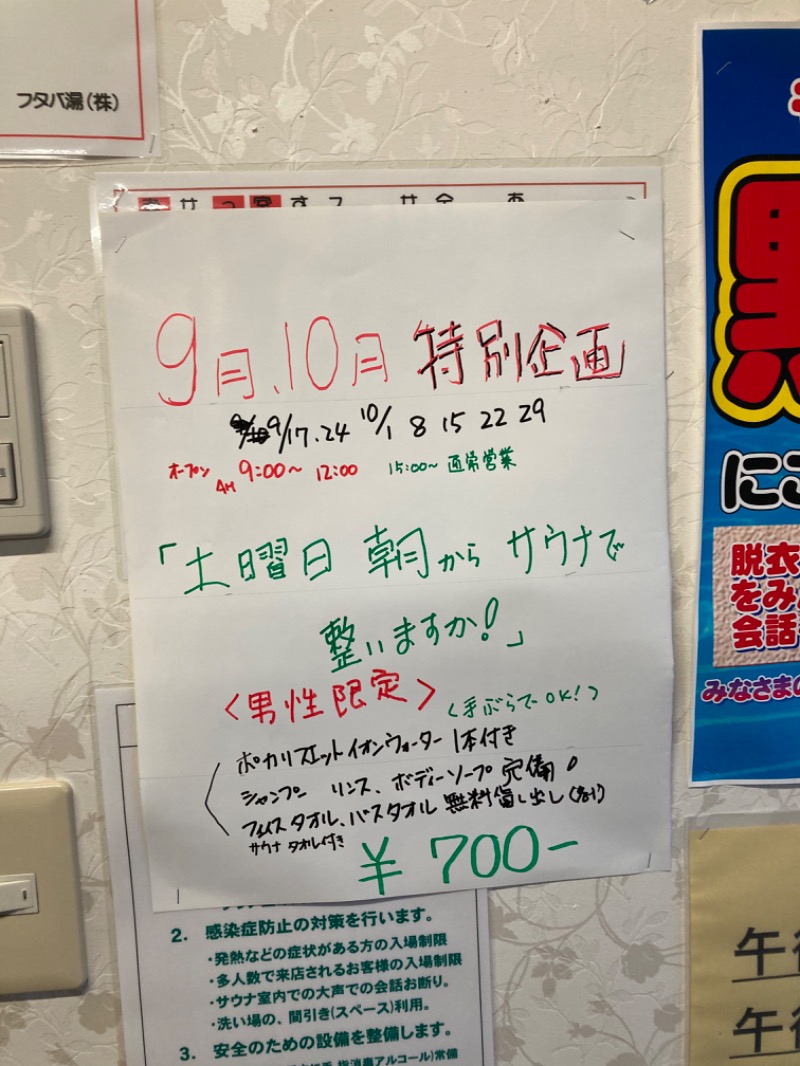 フタバ湯(株)
9月、10月 特別企画
9/17.24 10/1 8 15 22 29
オープン AM 9:00〜 12:00 15:00〜 通常営業
「土曜日 朝から サウナで
整いますか!」
<男性限定>
(手ぶらでOK!)
ポカリスエットイオンウォーター 1本付き
シャンプー リンス、ボディーソープ 完備!
フェイスタオル、バスタオル 無料貸し出し(各1)
サウナ タオル付き
¥700-
2. 感染症防止の対策を行います。
・発熱などの症状がある方の入場制限
・多人数で来店されるお客様の入場制限
・サウナ室内での大声での会話お断り。
・洗い場の、間引き(スペース)利用。
3. 安全のための設備を整備します。
指消毒アルコール)常備
にご
脱衣
をみ
会話
みなさまの
午後
午後